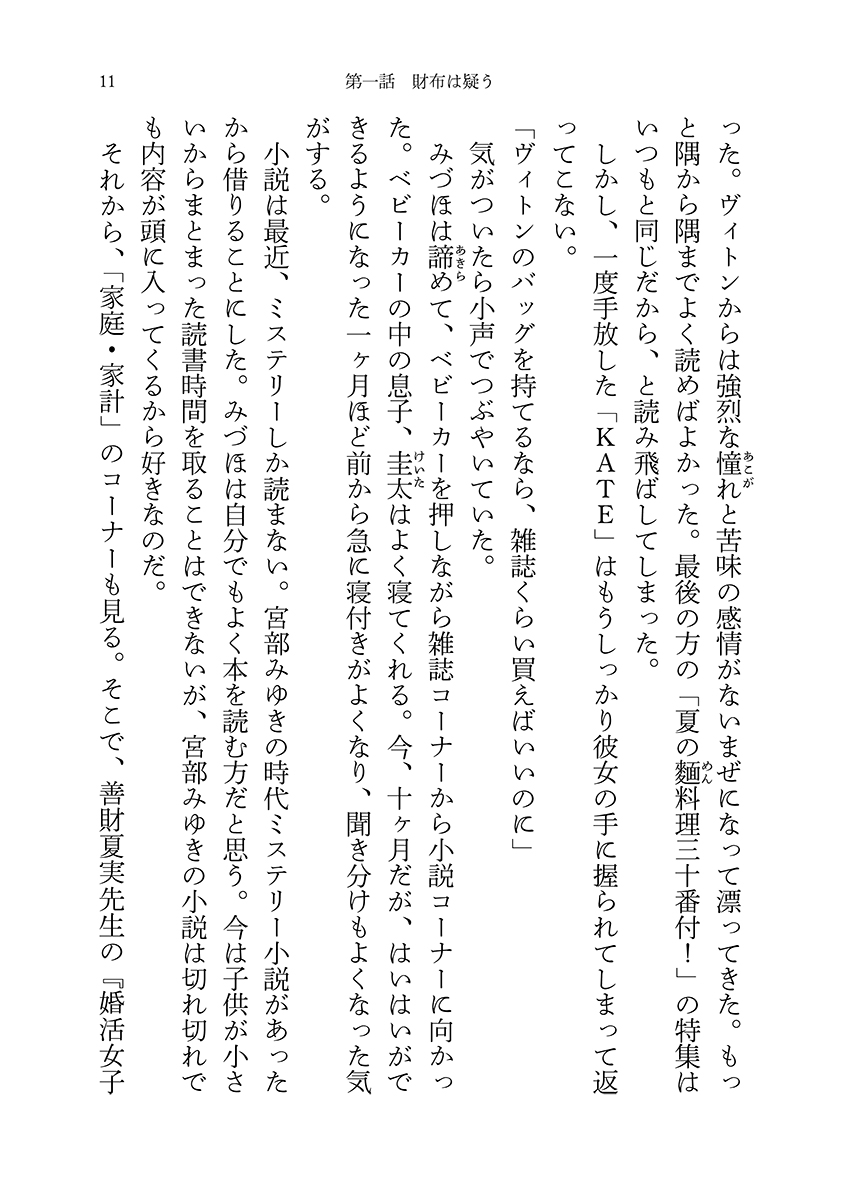 11
第一話　財布は疑う
った。ヴィトンからは強烈な憧れと苦味の感情がないまぜになって漂ってきた。もっ
あこが
と隅から隅までよく読めばよかった。最後の方の「夏の麵料理三十番付！」の特集は
めん
いつもと同じだから、と読み飛ばしてしまった。
しかし、一度手放した「ＫＡＴＥ」はもうしっかり彼女の手に握られてしまって返
ってこない。
「ヴィトンのバッグを持てるなら、雑誌くらい買えばいいのに」
気がついたら小声でつぶやいていた。
みづほは諦めて、ベビーカーを押しながら雑誌コーナーから小説コーナーに向かっ
あきら
た。ベビーカーの中の息子、圭太はよく寝てくれる。今、十ヶ月だが、はいはいがで
けいた
きるようになった一ヶ月ほど前から急に寝付きがよくなり、聞き分けもよくなった気
がする。
小説は最近、ミステリーしか読まない。宮部みゆきの時代ミステリー小説があった
から借りることにした。みづほは自分でもよく本を読む方だと思う。今は子供が小さ
いからまとまった読書時間を取ることはできないが、宮部みゆきの小説は切れ切れで
も内容が頭に入ってくるから好きなのだ。
それから、「家庭・家計」のコーナーも見る。そこで、善財夏実先生の『婚活女子